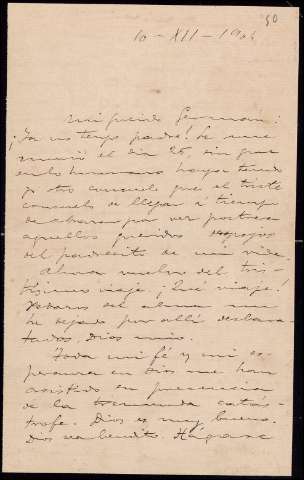 50
10 - XII - 1904
Mi querido German:
¡Ya no tengo padre! Se me
murió el dia 26, sin que
en lo humano haya tenido
yo otro consuelo que el triste
consuelo de llegar á tiempo
de abrazar por vez postrera
aquellos queridos despojos
del padrecito de mi vida.
Ahora vuelvo del tris-
tísimo viaje. ¡Qué viaje!
del alma me
he dejado por allí
Dios mío.
Toda mi fé y mi es-
peranza en Dios me han
asistido en presencia
de la tremenda catás-
trofe. Dios es muy bueno.
Dios sea bendito. Hágase